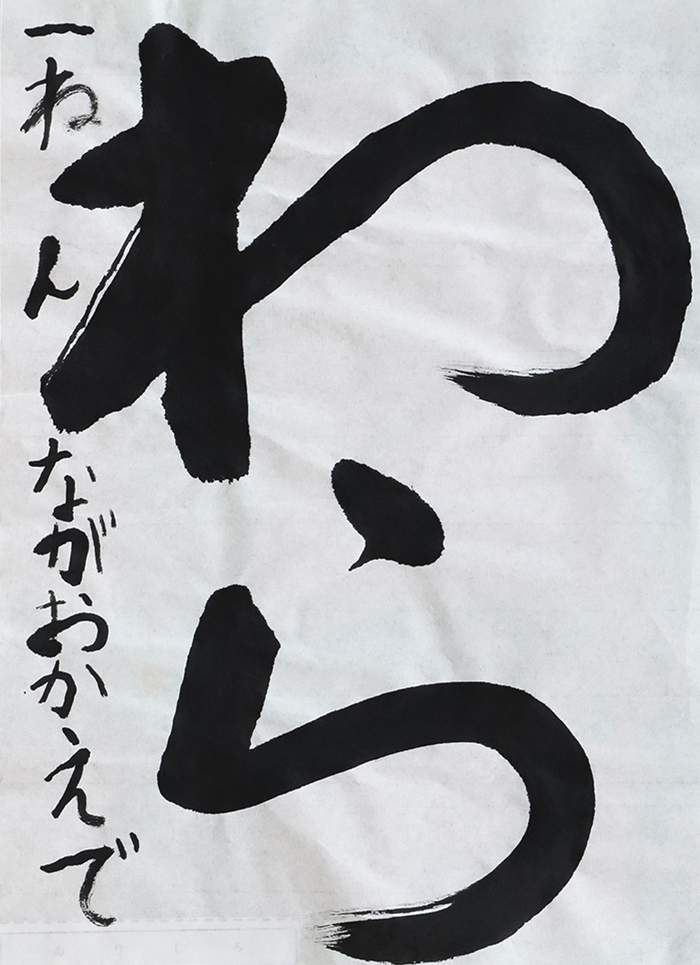 わら
一ねん ながおかえで